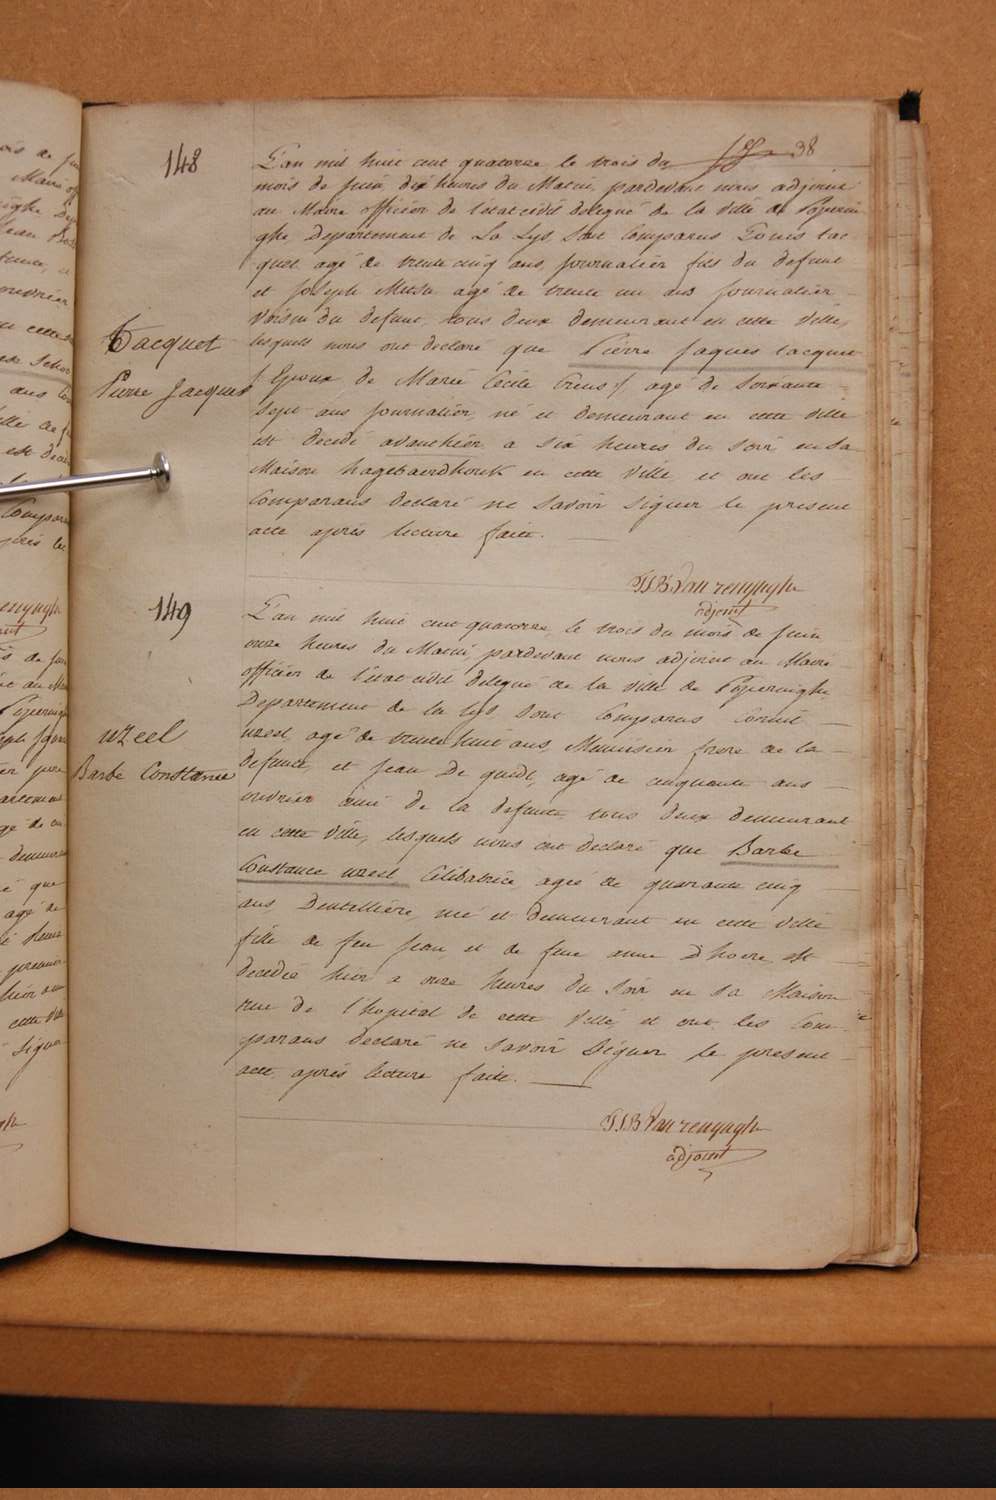 38
148
L'an mil huit cent quatorze le trois du
mois de Juin dix heures du Matin, pardevant nous adjoint
au Maire officier de l'état civil delegué de la ville de Poperin
ghe, Departement de La Lys, Sont Comparus Louis tac
quet agé de trente cinq ans, journalier fils du defunt
et Joseph Metsu agé de trente un ans journalier
voisin du defunt, tous deux demeurant en cette ville,
lesquels nous ont declaré que Pierre Jaques tacquet
Tacquet
Pierre Jacques
Epoux de Marie Cecile agé de Soixante
Sept ans journalier, né et demeurant en cette ville
est decedé avanthier a six heures du Soir en Sa
Maison hagebaerdhouk en cette ville et ont les
Comparans declaré ne Savoir Signer le present
acte après lecture faite.
JJB Van renynghe
adjoint
149
L'an mil huit cent quatorze, le trois du mois de Juin,
onze heures du Matin, pardevant nous adjoint au Maire
officier de l'état civil delegué de la ville de Poperinghe,
Departement de la Lys Sont Comparus Cornil
uzeel, agé de trente huit ans, Menuisier frere de la
uzeel
Barbe Constance
defunte, et Jean De quidt, agé de cinquante ans
ouvrier ami de la defunte tous deux demeurant
en cette ville, lesquels nous ont declaré que Barbe
Constance uzeel Célibatrice, agée de quarante cinq
ans Dentellière, née et demeurant en cette ville
fille de feu Jean, et de feue anne Dhoere est
decedée hier a onze heures du Soir en Sa Maison
rue de l'hopital de cette ville, et ont les Com
parans declaré ne Savoir Signer le present
acte après lecture faite.
JJB Van renynghe
adjoint